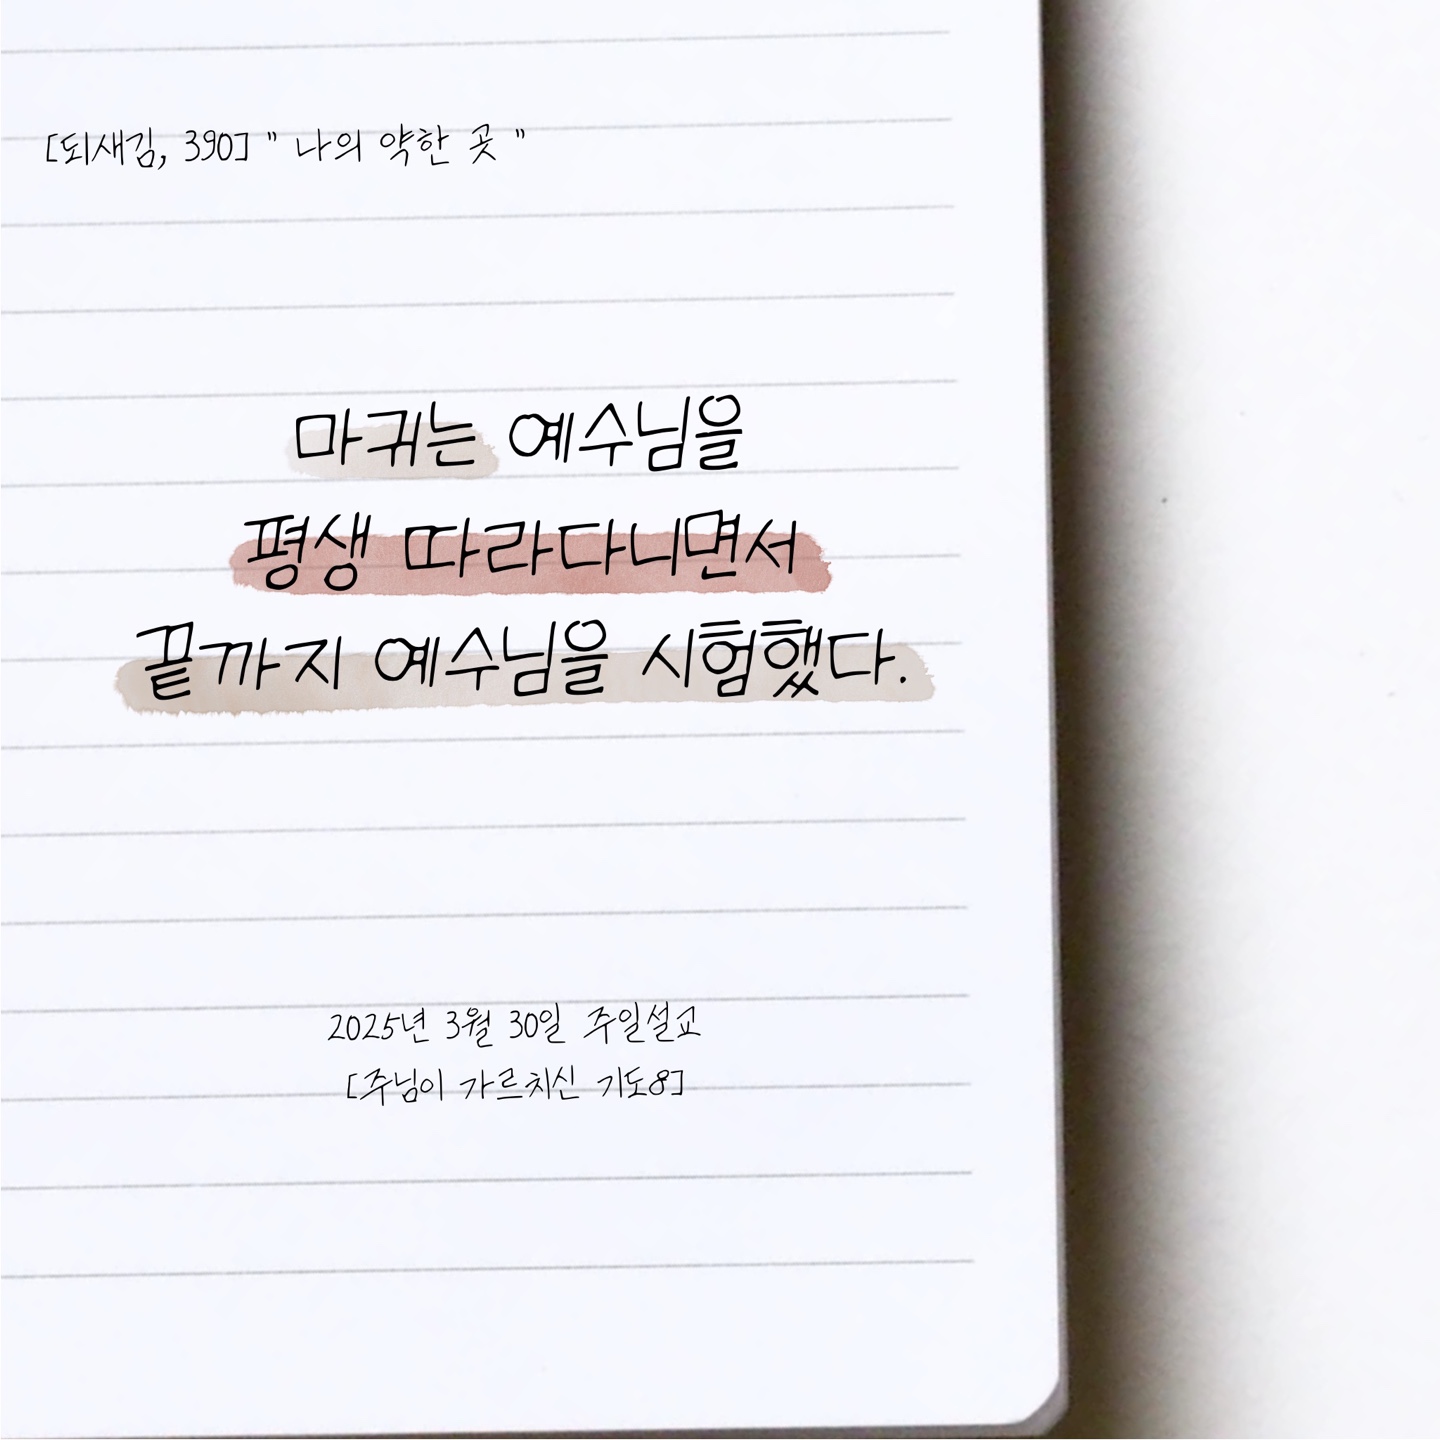 [되새김, 390] " 나의 약한 곳 "
마귀는 예수님을
평생 따라다니면서
끝까지 예수님을 시험했다.
2025년 3월 30일 주일설교
[주님이 가르치신 기도8]